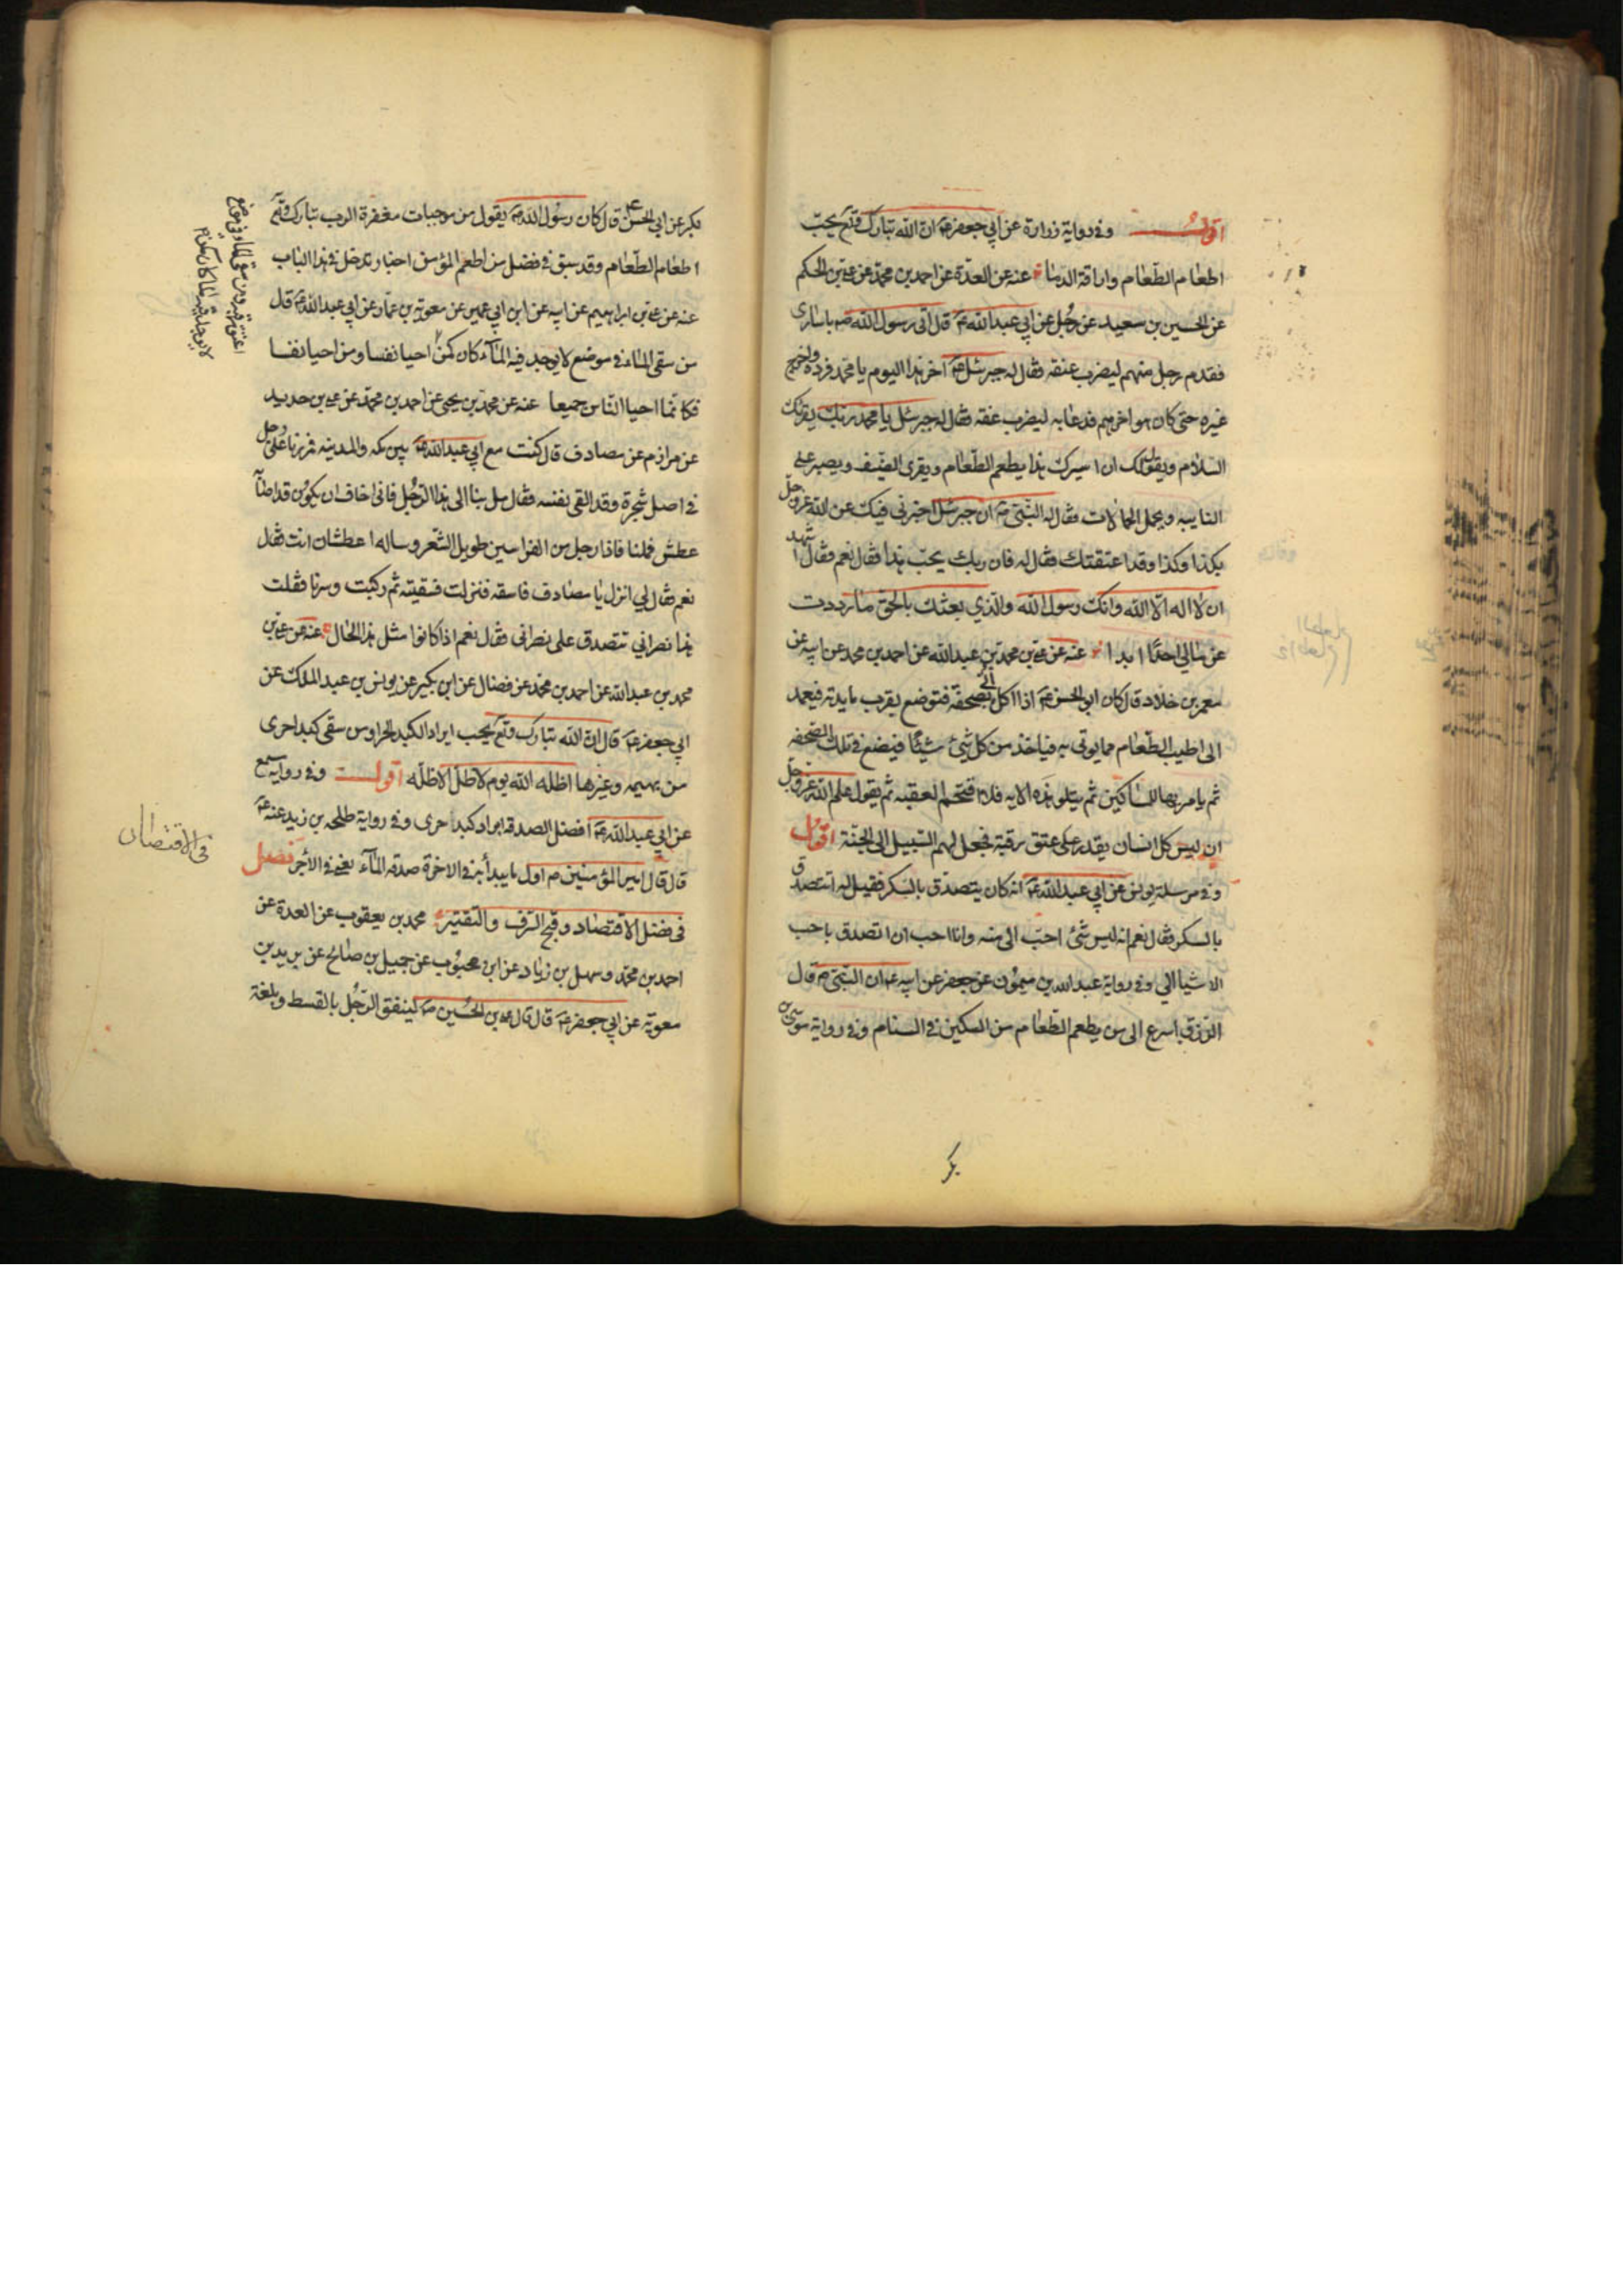 اقول وفي رواية زرارة عن ابي جعفر ع ان الله تبارك وتع يحبّ
اطعام الطّعام واراقة الدماء عنه عن العدّة عن احمد بن محمّد عن علي بن الحكم
عن الحسين بن سعيد عن رجُل عن ابي عبد الله ع قال اتى رسول الله ص باسارى
فقدم رجل منهم ليضرب عنقه فقال له جبرئيل ع اخر هذا اليوم يا محمّد فرده واخرج
غيره حتى كان هو اخرهم فدعا به ليضرب عنقه فقال له جبرئيل يا محمد ربّك يقرئك
السّلام ويقول لك ان اسيرك هذا يطعم الطّعام ويقري الضيف ويصبر على
النايبه ويحمل الحمالات فقال له النّبي ص ان جبرئيل اخبرني فيك عن الله عزوجل
بكذا وكذا وقد اعتقتك فقال له فان ربك يحبّ هذا فقال نعم فقال اشهد
ان لا اله الّا الله وانك رسول الله والّذي بعثك بالحق ما رددت
عن مالي احدًا ابدا عنه عن علي بن محمد بن عبد الله عن احمد بن محمد عن ابيه عن
معمر بن خلاد قال كان ابو الحسن ع اذا اكل اتي بصحفة فتوضع بقرب مايدته فيعمد
الى اطيب الطّعام مما يوتى به فياخذ من كل شئ شيئًا فيضع في تلك الصّحفه
ثم يامر بها للمساكين ثم يتلو هذه الايه فلا اقتحم العقبه ثم يقول علم الله عزوجل
ان ليس كل انسان يقدر على عتق رقبة فجعل لهم السّبيل الى الجنّة اقول
وفي مرسلة يونس عن ابي عبد الله ع انه كان يتصدّق بالسكر فقيل له اتتصدق
بالسكر فقال نعم انه ليس شئ احبّ الي منه وانا احب ان اتصدق باحب
الاشيا الي وفي رواية عبد الله بن ميمُون عن جعفر عن ابيه ع ان النّبي ص قال
الرّزق اسرع الى من يطعم الطّعام من السكين في السنام وفي رواية موسى بن
بكر
بكر عن ابي الحسن ع قال كان رسُول الله ص يقول من موجبات مغفرة الرب تبارك وتع
اطعام الطّعام وقد سبق في فضل من اطعم المؤمن اخبار تدخل في هذا الباب
عنه عن علي بن ابراهيم عن ابيه عن ابن ابي عمير عن معوية بن عمار عن ابي عبد الله ع قال
من سقى الماء في موضع لا يوجد فيه المآء كان كمن احيا نفسا ومن احيا نفسا
فكانّما احيا النّاس جميعا عنه عن محمّد بن يحيى عن احمد بن محمّد عن علي بن حديد
عن مرازم عن مصادف قال كنت مع ابي عبد الله ع بين مكه والمدينه فمررنا على رجل
في اصل شجرة وقد القى بنفسه فقال مل بنا الى هذا الرّجُل فاني اخاف ان يكون قد اصابه
عطش فملنا فاذا رجل من الفراسين طويل الشّعر وساله اعطشان انت فقال
نعم فقال لي انزل يا مصادف فاسقه فنزلت فسقيته ثم ركبت وسرنا فقلت
هذا نصراني تتصدق على نصراني فقال نعم اذا كانوا مثل هذا الحال عنه عن علي بن
محمد بن عبد الله عن احمد بن محمد عن فضال عن ابن بكير عن يونس بن عبد الملك عن
ابي جعفر ع قال ان الله تبارك وتع يحب ابراد الكبد الحرا ومن سقى كبدا حرى
من بهيمه وغيرها اظله الله يوم لا ظلّ الا ظلّه اقول وفي رواية مسمع
عن ابي عبد الله ع افضل الصدقه ابراد كبد حرى وفي رواية طلحه بن زيد عنه ع
قال قال امير المؤمنين ع اول ما يبدأ به في الاخرة صدقه المآء يعني في الأجر فصل
في فضل الاقتصاد وقبح السّرف والتقتير محمد بن يعقوب عن العدة عن
احمد بن محمّد وسهل بن زياد عن ابن محبُوب عن جميل بن صالح عن بريد بن
معوية عن ابي جعفر ع قال قال علي بن الحُسين ع لينفق الرّجُل بالقسط وبلغة
في الاقتصاد